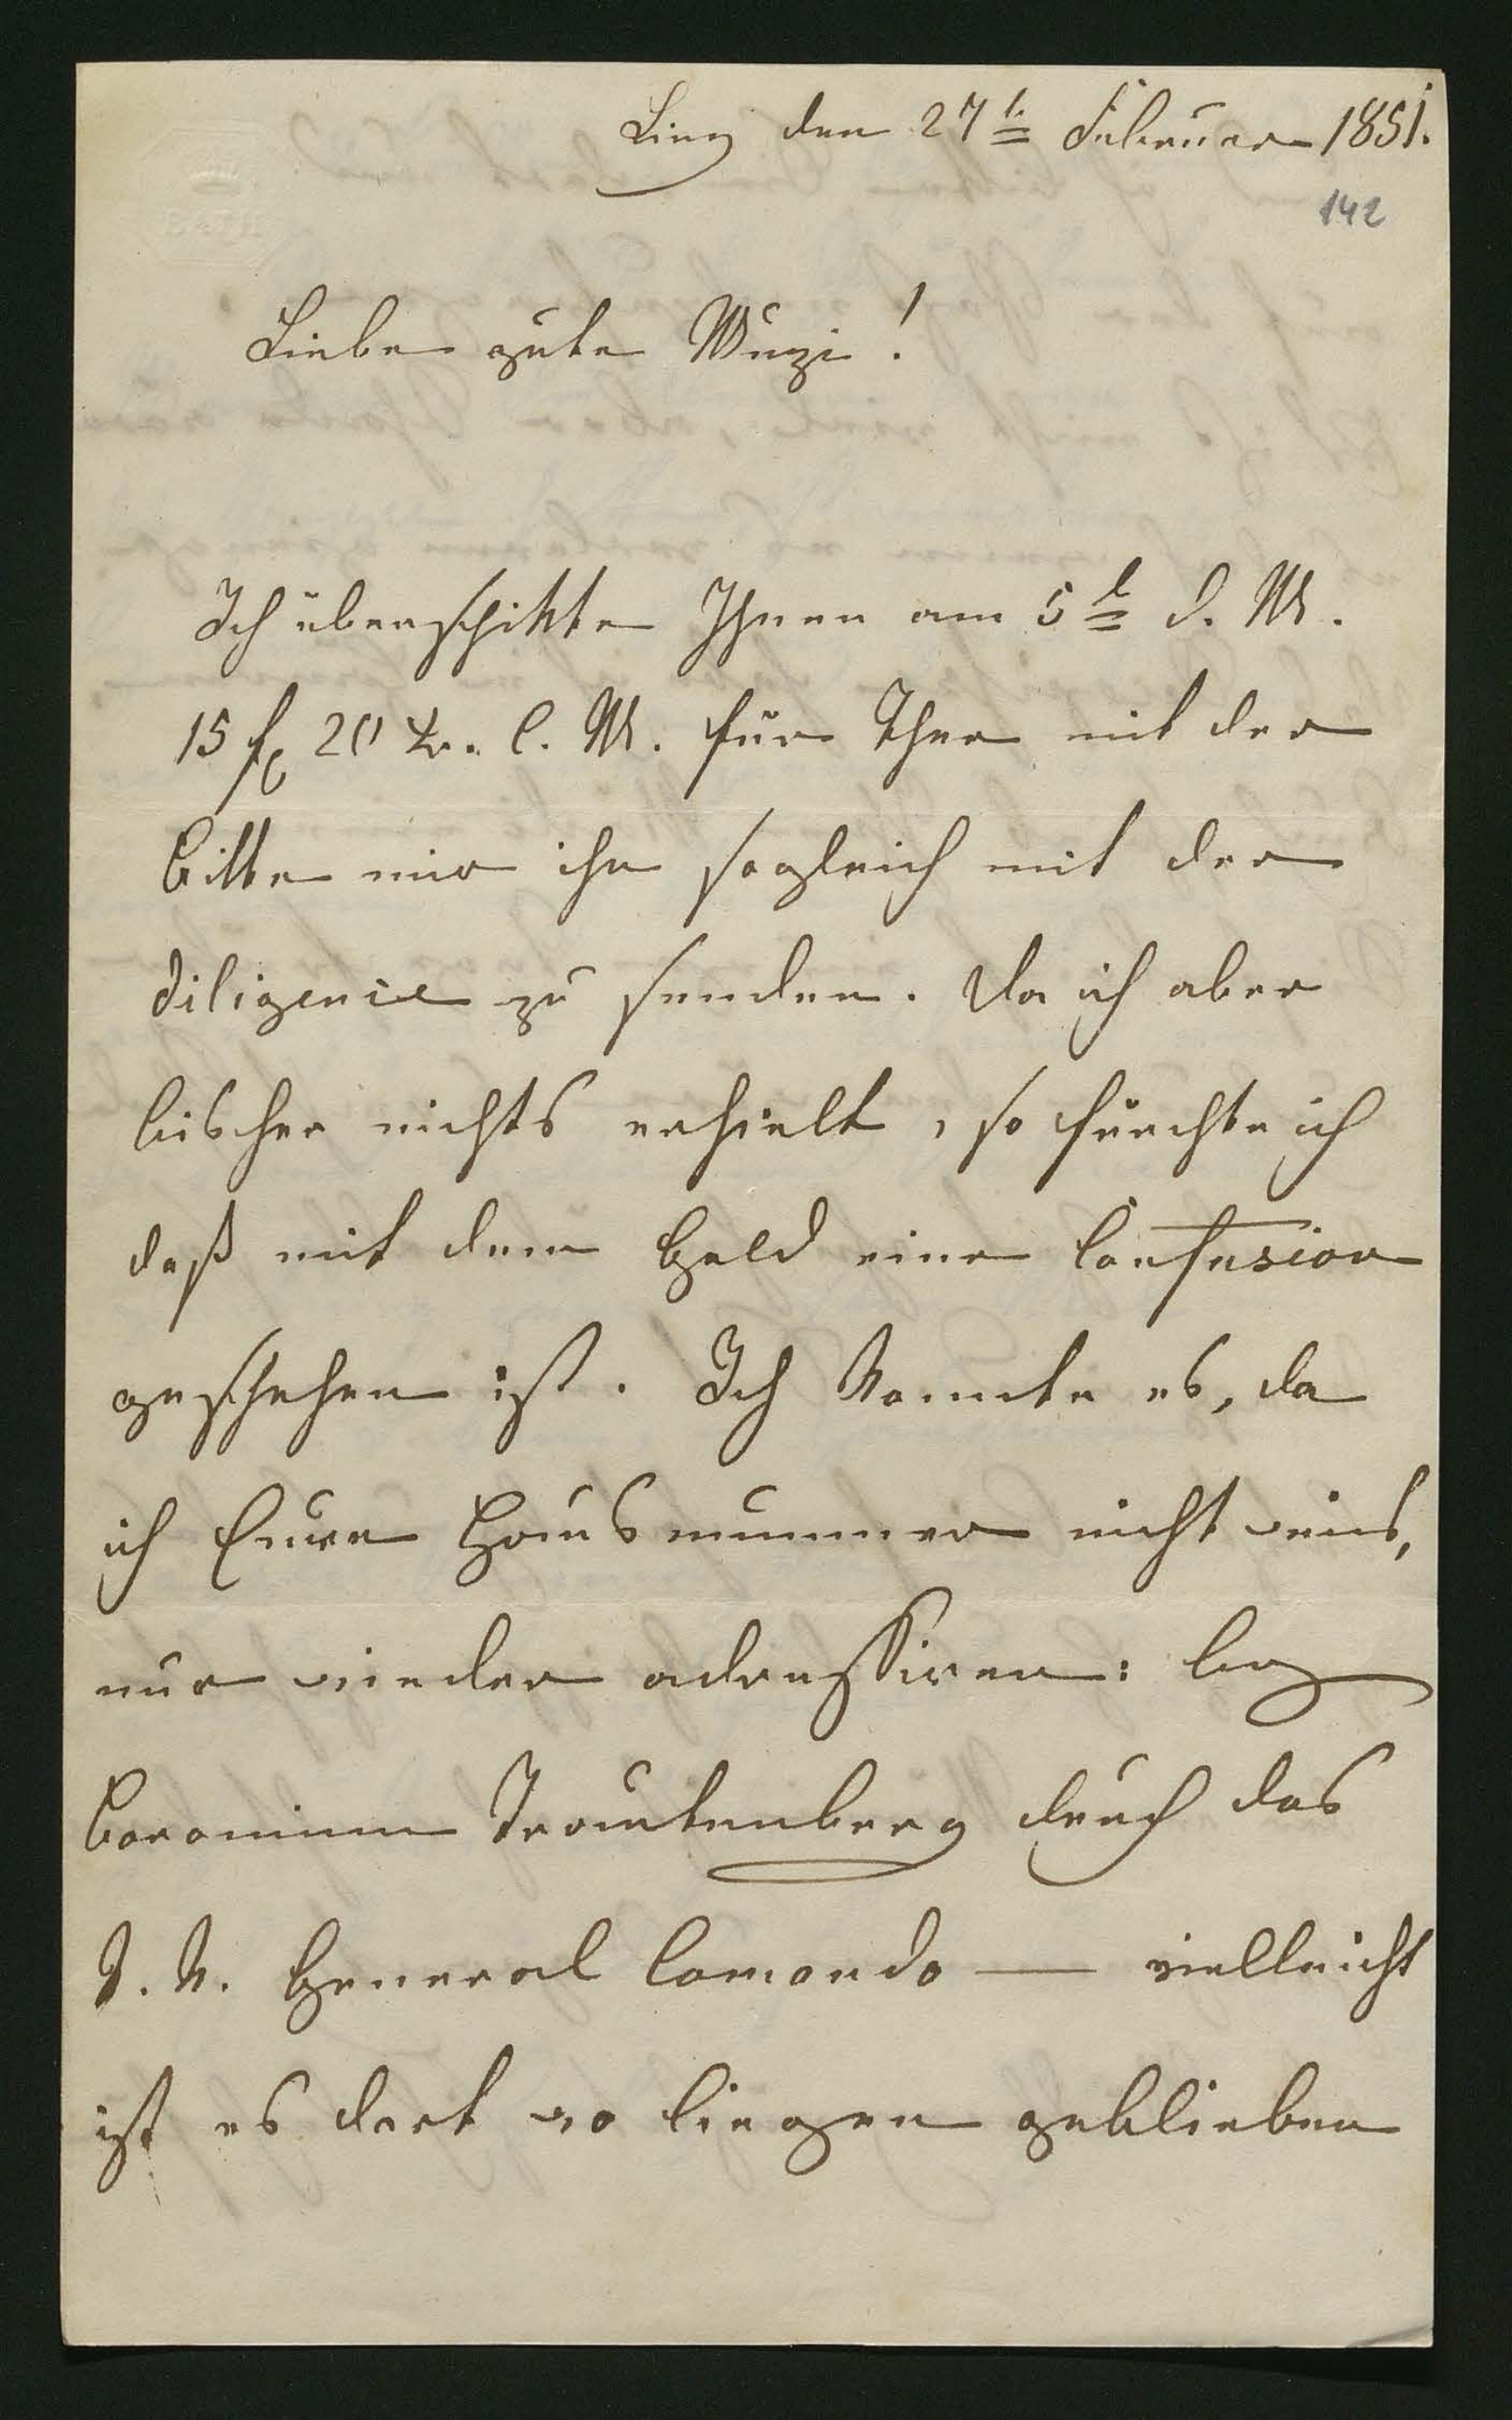 Linz den 27t Februar 1851.
142
Liebe gute Muzi!
Ich überschikte Ihnen am 5t d. M.
15 f 20 Kr. C. M. für Thee mit der
Bitte mir ihn sogleich mit der
Diligence zu senden. Da ich aber
bisher nichts erhielt, so fürchte ich
daß mit dem Geld eine Confusion
geschehen ist. Ich konnte es, da
ich Eure Hausnummer nicht weis,
nur wieder adressiren:
Baroninn Trautenberg durch das
General Comando — vielleicht
ist es dort wo liegen geblieben